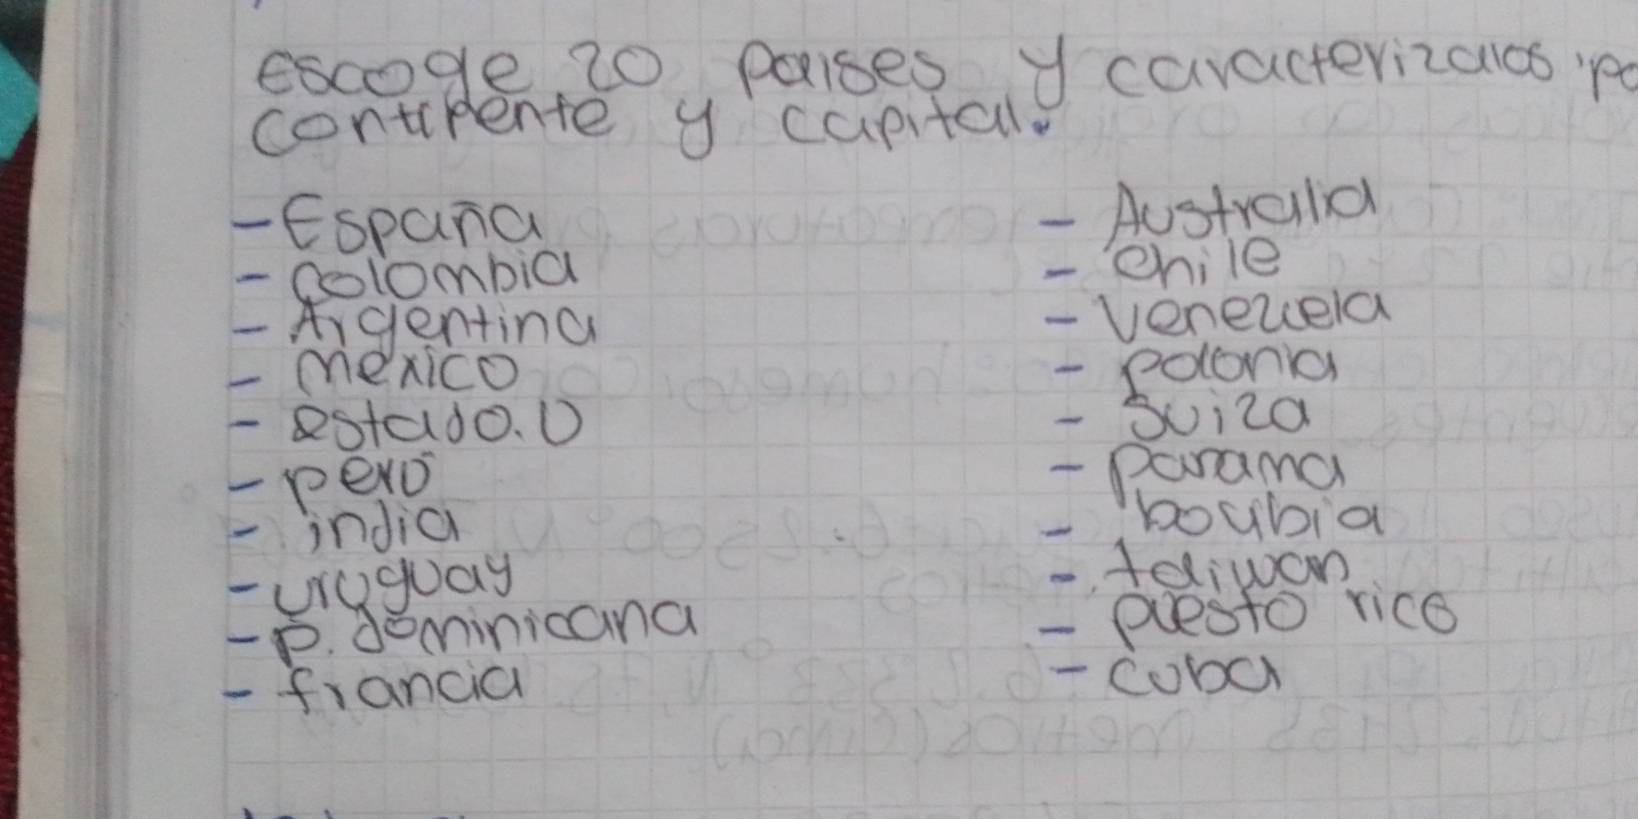 Escoge 20 paises y caracterizalos po
continente y capital.
- España
- Colombia
- Argentina
- Mexico
- estado.U
- perú
- india
- uruguay
- P. dominicana
- francia
- Australia
- chile
- Venezuela
- polonia
- Suiza
- panama
- bolibia
- taiwan
- puesto rico
- Cuba